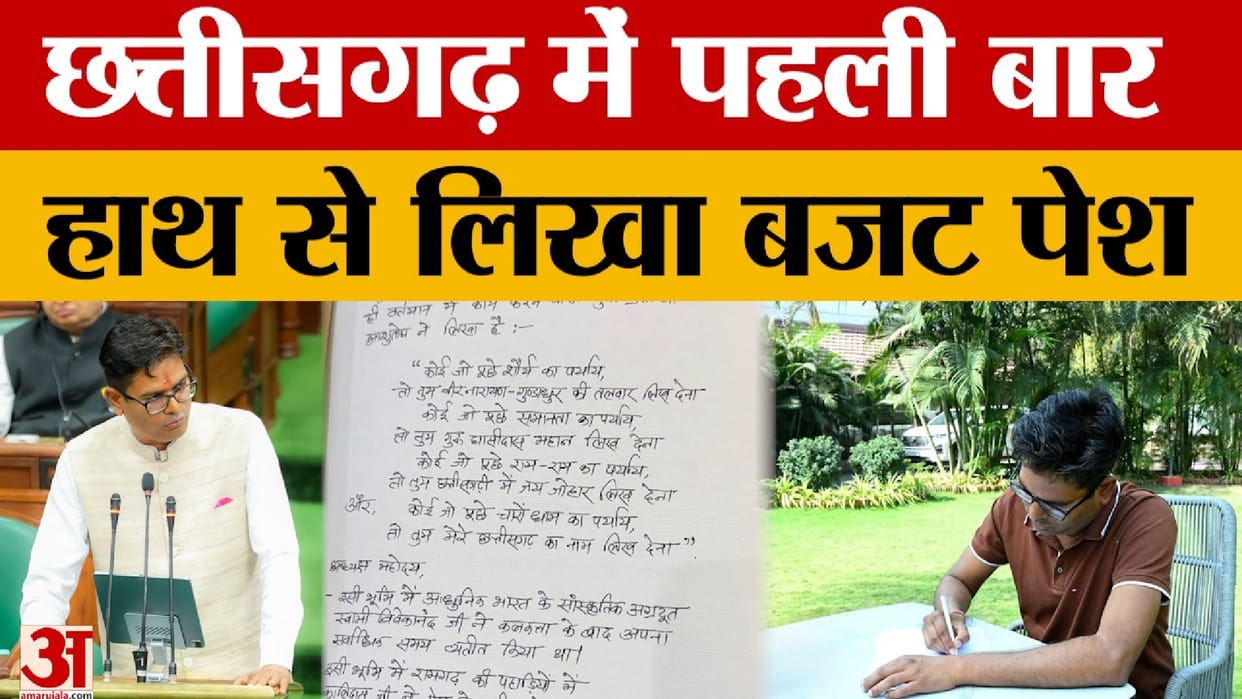 छत्तीसगढ़ में पहली बार
हाथ से लिखा बजट पेश
ही वर्तमान में काम करने
आशुतोष ने लिखा है :-
"कोई जो पूछे शौर्य का पर्याय,
तो तुम वीरनारायण-गुण्डाधुर की तलवार लिख देना
कोई जो पूछे समानता का पर्याय,
तो तुम गुरु घासीदास महान लिख देना
कोई जो पूछे राम-राम का पर्याय,
तो तुम छत्तीसगढ़ी में जय जोहार लिख देना
और, कोई जो पूछे चारों धाम का पर्याय,
तो तुम मेरे छत्तीसगढ़ का नाम लिख देना".
अध्यक्ष महोदय,
- इसी भूमि में आधुनिक भारत के सांस्कृतिक अग्रदूत
स्वामी विवेकानंद जी ने कलकत्ता के बाद अपना
सर्वाधिक समय व्यतीत किया था।
इसी भूमि में रामगढ़ की पहाड़ियों में
कालिदास जी ने
अ
amarujala.com